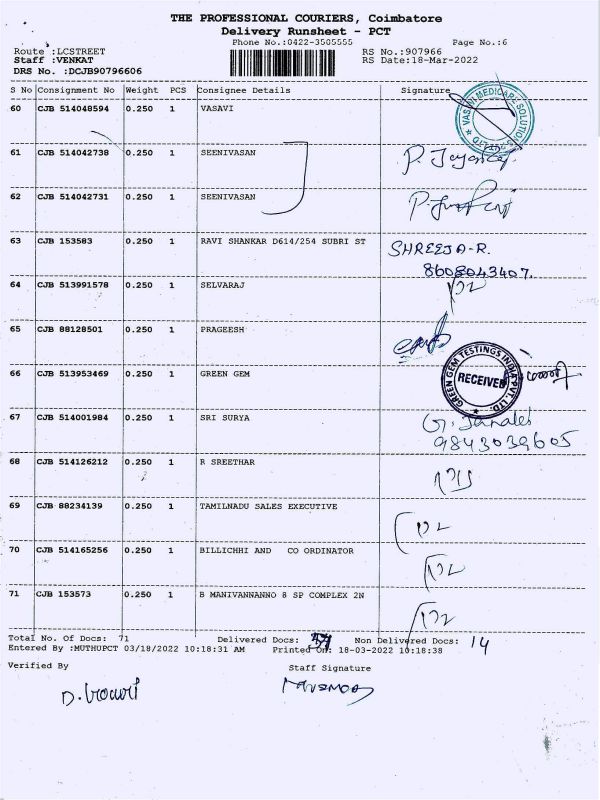 THE PROFESSIONAL COURIERS, Coimbatore
Delivery Runsheet - PCT
Phone No.:0422-3505555 Page No.:6
Route :LCSTREET RS No.:907966
Staff :VENKAT RS Date:18-Mar-2022
DRS No. :DCJB90796606
S No Consignment No Weight PCS Consignee Details Signature
60 CJB 514048594 0.250 1 VASAVI
61 CJB 514042738 0.250 1 SEENIVASAN
62 CJB 514042731 0.250 1 SEENIVASAN
63 CJB 153583 0.250 1 RAVI SHANKAR D614/254 SUBRI ST SHREEJA-R.
8608043407.
64 CJB 513991578 0.250 1 SELVARAJ
65 CJB 88128501 0.250 1 PRAGEESH
66 CJB 513953469 0.250 1 GREEN GEM GREEN GEM TESTINGS INDIA PVT. LTD. RECEIVED
67 CJB 514001984 0.250 1 SRI SURYA
9843039605
68 CJB 514126212 0.250 1 R SREETHAR
69 CJB 88234139 0.250 1 TAMILNADU SALES EXECUTIVE
70 CJB 514165256 0.250 1 BILLICHHI AND CO ORDINATOR
71 CJB 153573 0.250 1 B MANIVANNANNO 8 SP COMPLEX 2N
Total No. Of Docs: 71 Delivered Docs: Non Delivered Docs: 14
Entered By :MUTHUPCT 03/18/2022 10:18:31 AM Printed On: 18-03-2022 10:18:38
Verified By Staff Signature